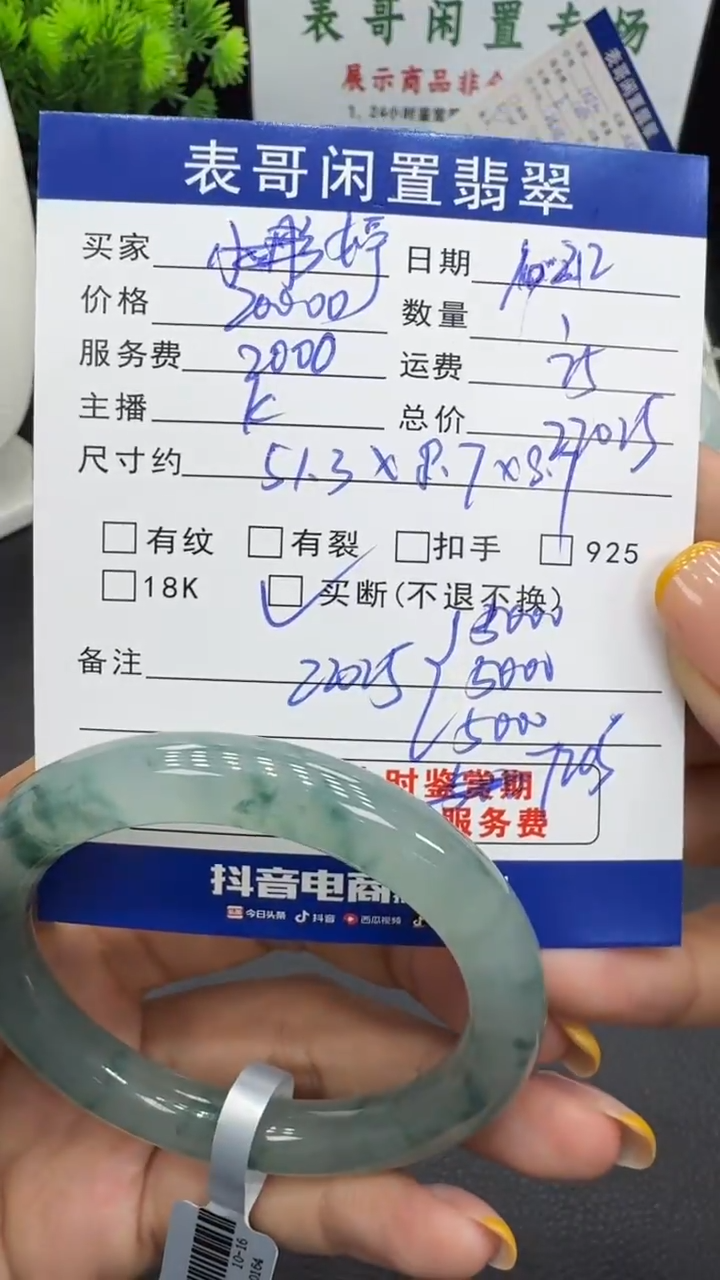 表哥闲置专场
展示商品非
1、24小时鉴赏
表哥闲置翡翠
表哥闲置翡翠
买家 日期
价格 20000 数量 1
服务费 2000 运费 25
主播 K 总价 22025
尺寸约 51.3 × 8.7 × 8.7
□有纹 □有裂 □扣手 □925
□18K ✓□买断(不退不换)
5000
备注 22025 { 5000
5000
7025
时鉴赏期
服务费
抖音电商
今日头条 抖音 西瓜视频
10-16
0164